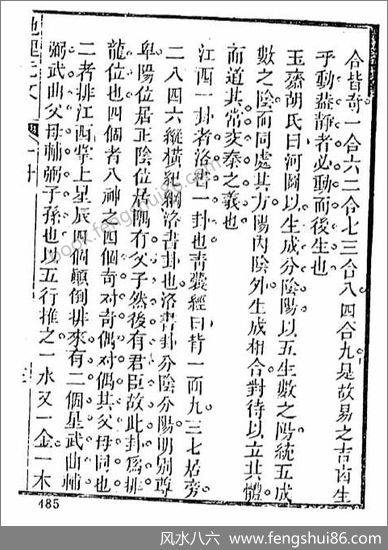 合皆奇一合六二合七三合八四合九是故易之吉凶生
乎動蓋靜者必動而後生也
玉齋胡氏曰河圖以生成分陰陽以五生數之陽統五成
數之陰而同處其方陽內陰外生成相合對待以立其體
而道其常變泰之義也
江西一卦者洛書一卦也青囊經曰背一面九三七居旁
二八四六縱橫紀綱洛書卦也洛書卦分陰分陽明別尊
卑陽位居正陰位居隅有父子然後有君臣故此卦爲排
龍位也四個者八神之四個奇对奇偶对偶其父母同也
二者排江西掌上星辰四個顛倒排來有二個星武曲輔
弼武曲父母輔弼子孫也以五行推之一水又一金一木
485
风水八六 www.fengshui86.com